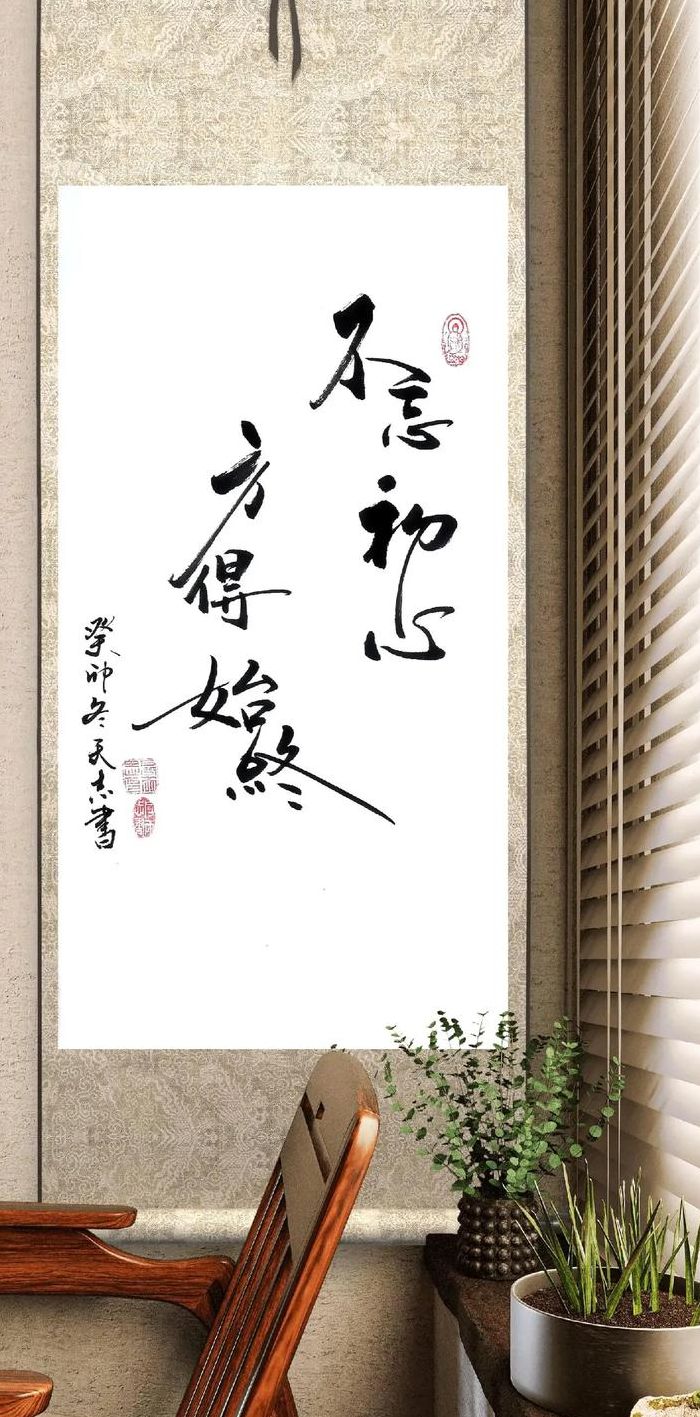 不忘初心
方得始终
癸卯冬天志書